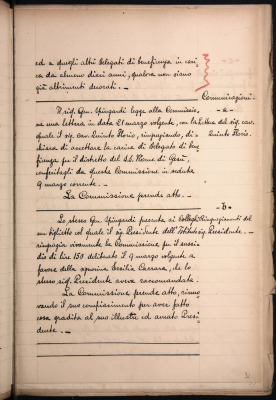 ed a quegli altri Delegati di beneficenza in cari-
ca da almeno dieci anni, qualora non siano
già altrimenti decorati. -
Comunicazioni.
- a -
Il sig. Gen. Spingardi legge alla Commissio-
ne una lettera in data 21 marzo volgente, con la
quale il sig. cav. Quinto Florio, ringraziando, di-
chiara di accettare la carica di Delegato di bene-
ficenza pel distretto del SS. Nome di Gesù,
conferitagli da questa Commissione in seduta
9 marzo corrente. -
La Commissione prende atto. -
Lettera del sig. cav.
Quinto Florio.
- b -
Lo stesso Gen. Spingardi presenta ai Colleghi
un biglietto col quale il sig. Presidente
ringrazia vivamente la Commissione pel sussi-
dio di lire 150 deliberato il 9 marzo volgente a
favore della signorina Cecilia Carrara, che lo
stesso sig. Presidente aveva raccomandata.
La Commissione prende atto, rinno-
vando il suo compiacimento per aver fatto
cosa gradita al suo illustre ed amato Presi-
dente. -
Ringraziamenti del
sig. Presidente. -